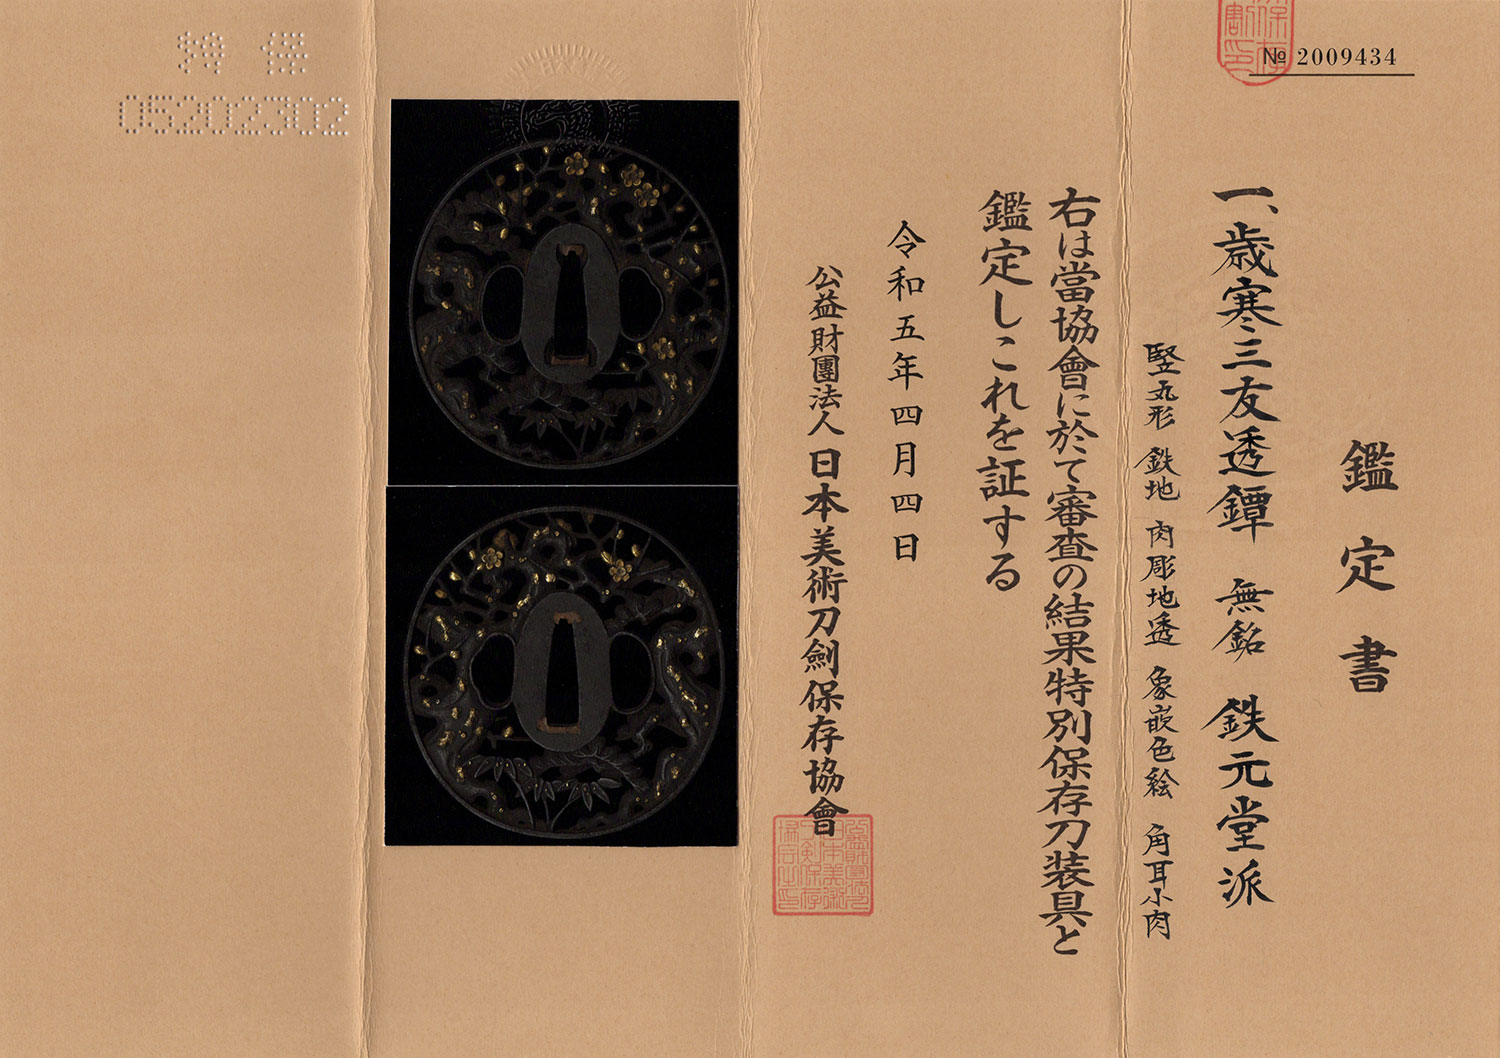 № 2009434
鑑定書
一、歳寒三友透鐔 無銘 鉄元堂派
竪丸形 鉄地 肉彫地透 象嵌色絵 角耳小肉
右は當協會に於て審査の結果特別保存刀装具と
鑑定しこれを証する
令和五年四月四日
公益財團法人日本美術刀劍保存協會
特 保
05202302